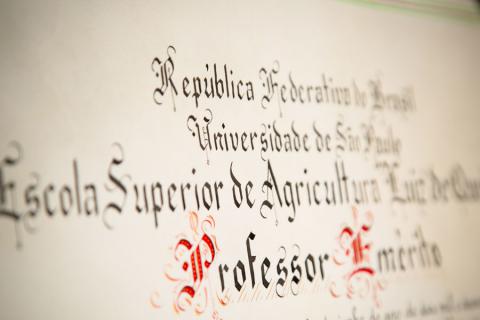 República Federativa do Brasil
Universidade de São Paulo
Escola Superior de Agricultura Luiz de Que
Professor Emérito